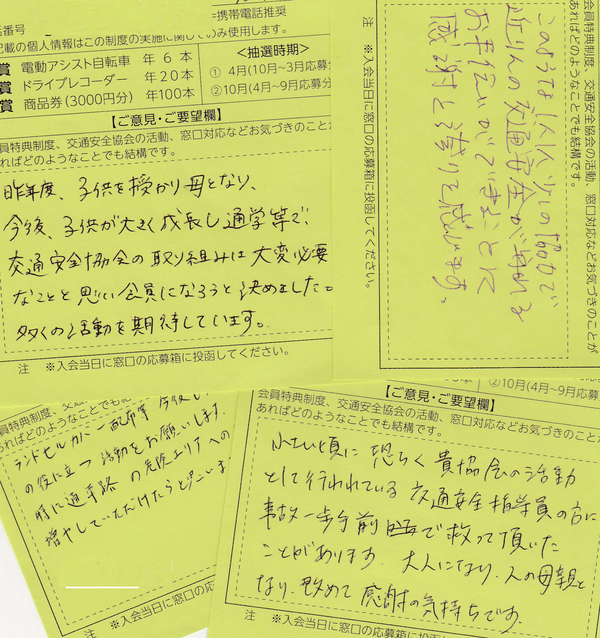 =携帯電話推奨
電話番号
記載の個人情報はこの制度の実施に関してのみ使用します。
賞 電動アシスト自転車 年 6本
賞 ドライブレコーダー 年20本
賞 商品券(3000円分) 年100本
<抽選時期>
① 4月(10月~3月応募分
②10月(4月~9月応募分
【ご意見・ご要望欄】
員特典制度、交通安全協会の活動、窓口対応などお気づきのことが
あればどのようなことでも結構です。
昨年度、子供を授かり母となり、
今後、子供が大きく成長し通学等で、
交通安全協会の取り組みは大変必要
なことと思い会員になろうと決めました。
多くの活動を期待しています。
注 ※入会当日に窓口の応募箱に投函してください。
会員特典制度、交通安全協会の活動、窓口対応などお気づきのことが
あればどのようなことでも結構です。
このような1人1人の協力で
近りんの交通安全が守れる
お手伝いができることに
感謝と誇りを感じます。
注 ※入会当日に窓口の応募箱に投函してください。
会員特典制度、交
あればどのような
ランドセルカバー配布等 今後も
の役に立つ活動をお願いします。
特に通学路の危険エリアへの
増やしていただけたらと思いま
注 ※入会当日に窓口の
②10月(4月~9月応募分
【ご意見・ご要望欄】
会員特典制度、交通安全協会の活動、窓口対応などお気づきのことが
あればどのようなことでも結構です。
小さい頃に恐らく貴協会の活動
として行われている交通安全指導員の方に
事故一歩手前で救って頂いた
ことがあります。大人になり、人の母親と
なり、改めて感謝の気持ちです。
注 ※入会当日に窓口の応募箱に投函